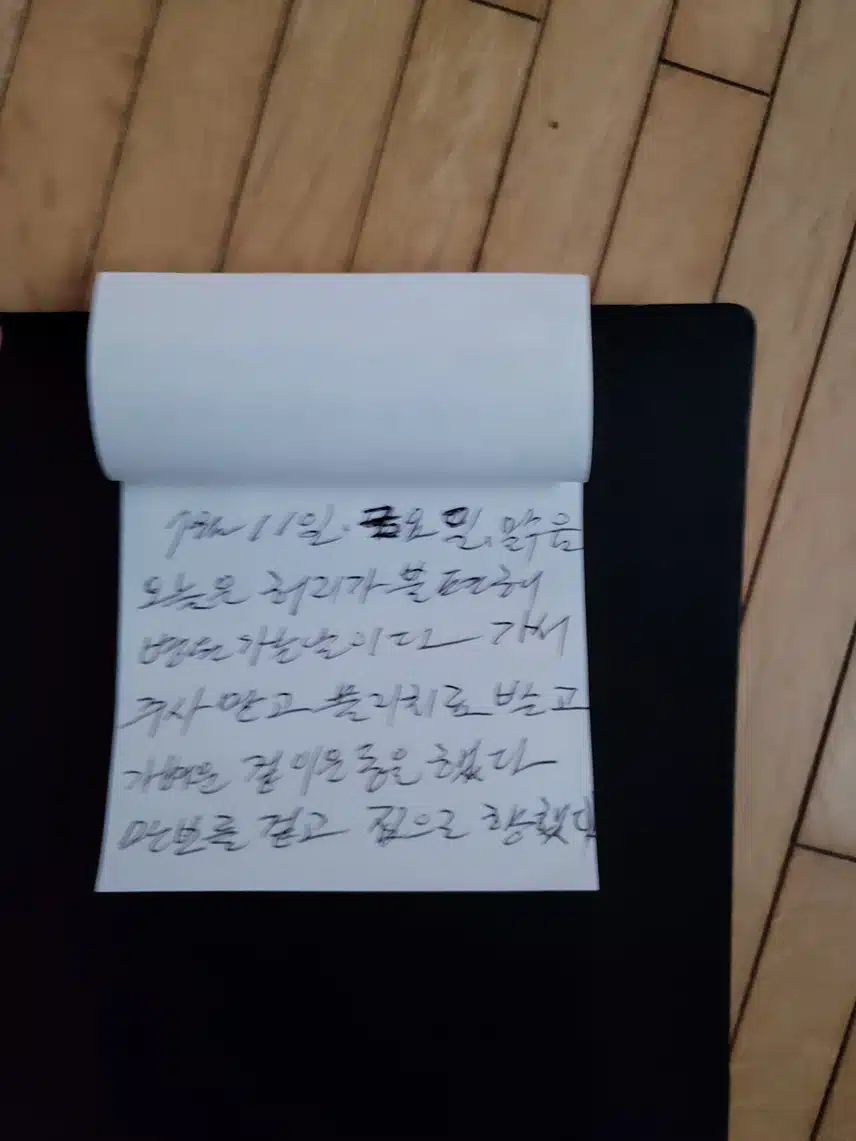 11일. 금요일, 맑음
오늘은 허리가 불편해
병원 가는날이다 가서
주사 맞고 물리치료 받고
가벼운 걷이운동을 했다
만보를 걷고 집으로 향했다